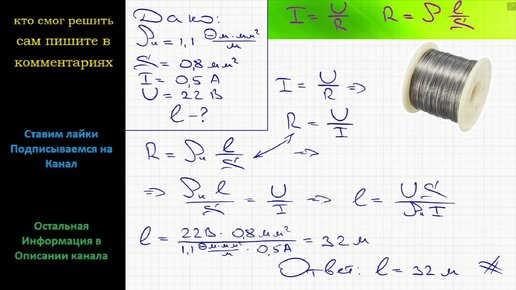 кто смог решить
сам пишите в
комментариях
Ставим лайки
Подписываемся на
Канал
Остальная
Информация в
Описании канала
I = U/R R = ρ l/S
Дано:
ρн = 1,1 Ом·мм²/м
S = 0,8 мм²
I = 0,5 А
U = 22 В
l - ?
I = U/R ⇒
R = U/I
R = ρн l/S ⇒
⇒ ρн l/S = U/I ⇒ l = US/ρн I
l = 22В · 0,8 мм²/1,1 Ом·мм²/м · 0,5А = 32 м
Ответ: l = 32 м